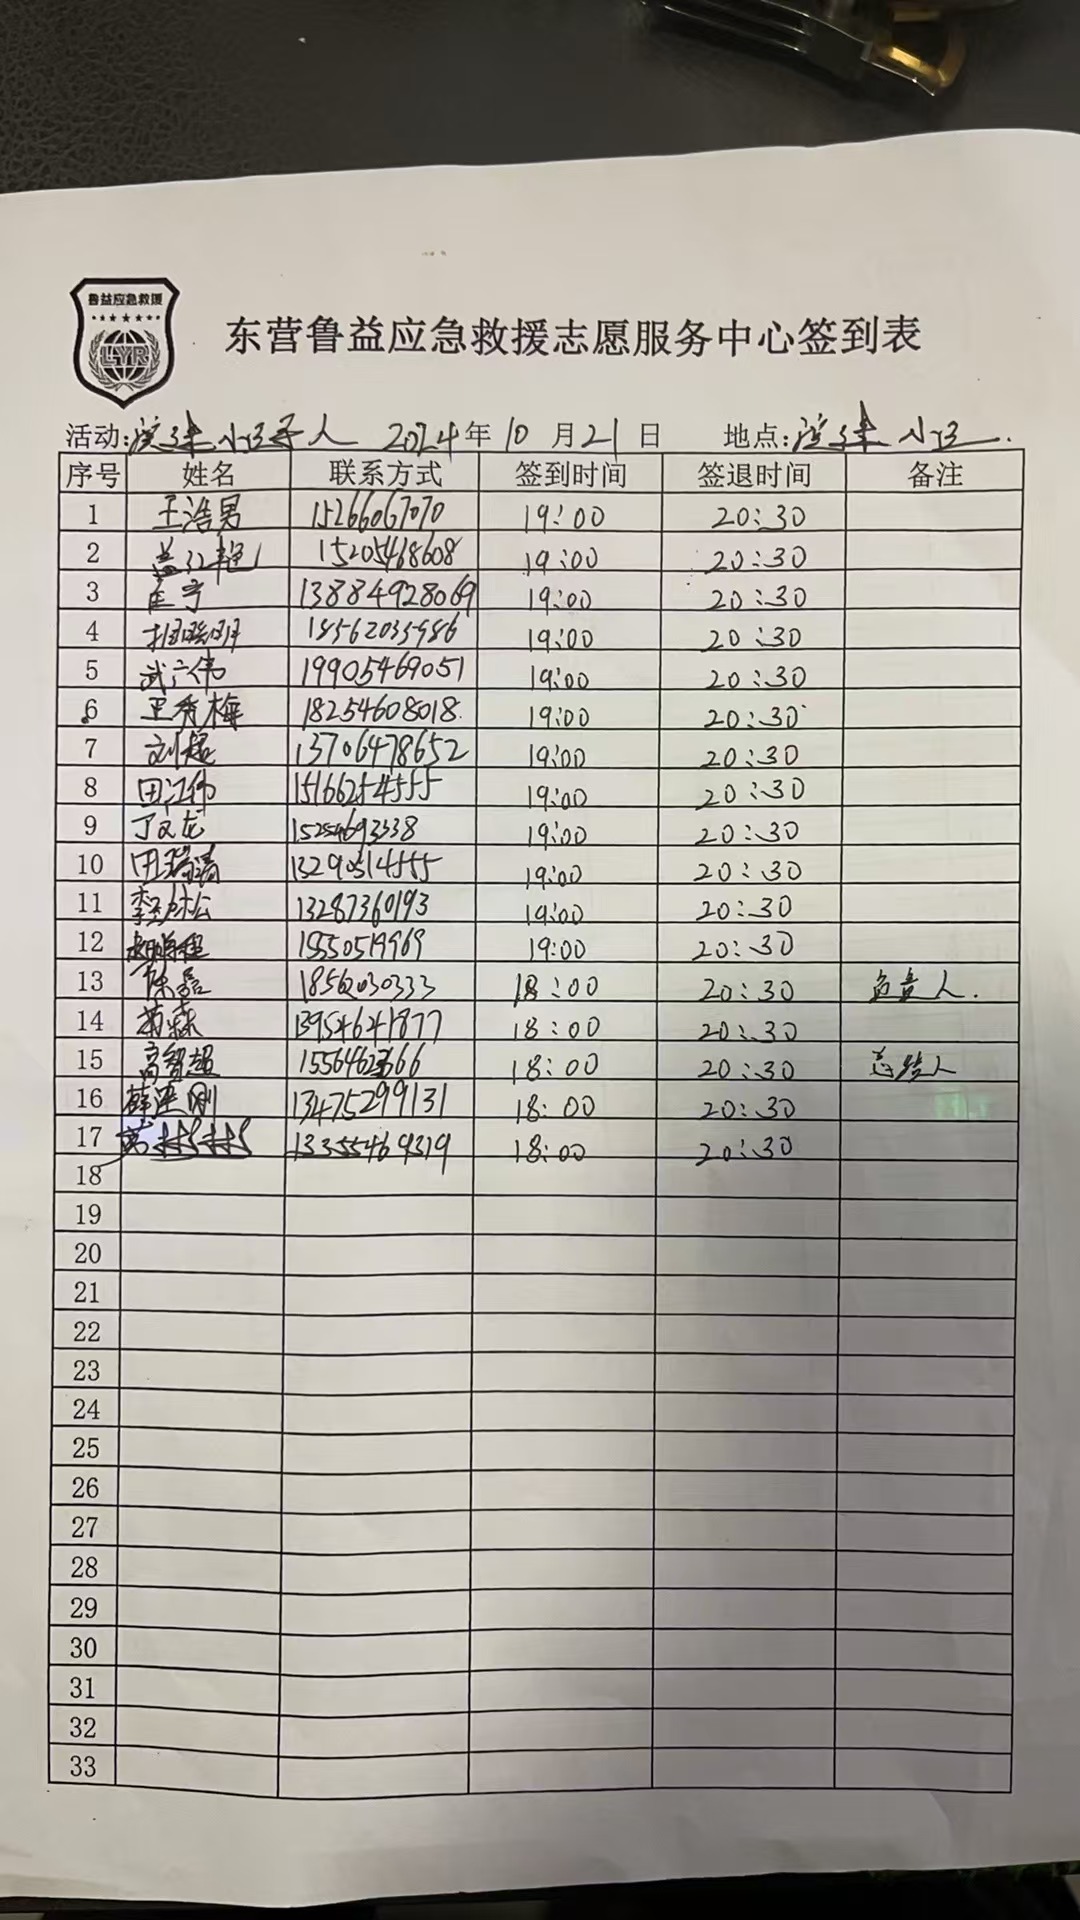 鲁益应急救援
LYR
东营鲁益应急救援志愿服务中心签到表
活动: 小 人 2024年10月21日 地点: 小
序号 姓名 联系方式 签到时间 签退时间 备注
1 王浩男 15266067070 19:00 20:30
2 15205468608 19:00 20:30
3 匡宁 13884928069 19:00 20:30
4 19:00 20:30
5 武广伟 19905469051 19:00 20:30
6 王秀梅 18254608018 19:00 20:30
7 刘超 13706478652 19:00 20:30
8 田江伟 15166254555 19:00 20:30
9 丁文龙 15254693338 19:00 20:30
10 田瑞清 13290314555 19:00 20:30
11 13287360193 19:00 20:30
12 15550519969 19:00 20:30
13 陈磊 18562030333 18:00 20:30 负责人.
14 13954641877 18:00 20:30
15 高智超 18:00 20:30 总结人
16 薛建刚 13475299131 18:00 20:30
17 13355469319 18:00 20:30
18
19
20
21
22
23
24
25
26
27
28
29
30
31
32
33